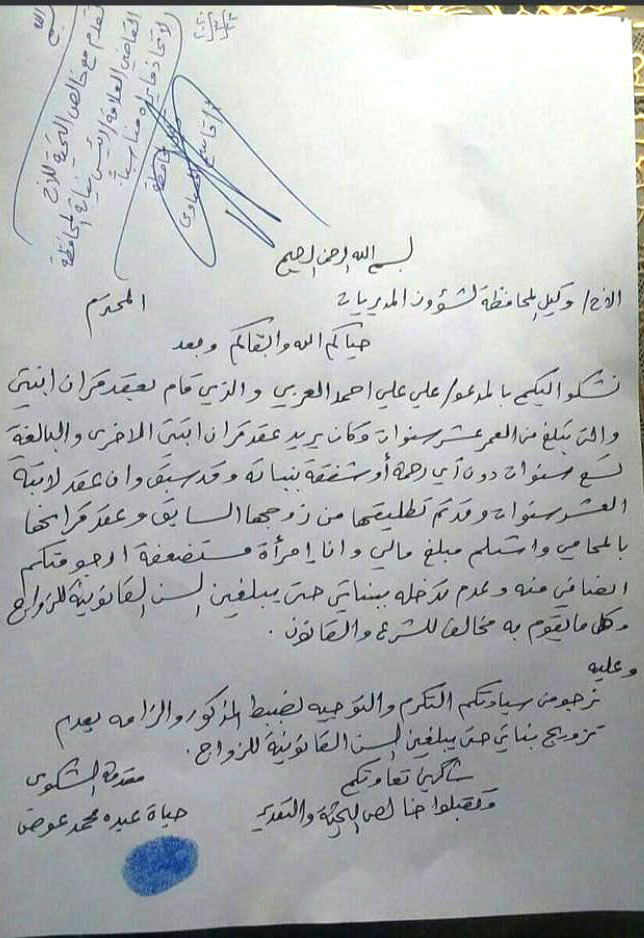 نقدم مع خالص التحية للأخ
القاضي العلامة رئيس نيابة المحافظة
لاتخاذ ما يراه مناسباً
بسم الله الرحمن الرحيم
الاخ/ وكيل المحافظة لشؤون المديريات المحترم
حياكم الله وابقاكم وبعد
نشكو اليكم بالمدعو/ علي علي احمد العربي والذي قام بعقد قران ابنتي
والتي تبلغ من العمر عشر سنوات وكان يريد عقد قران ابنتي الاخرى والبالغة
تسع سنوات دون أي رحمة أو شفقة ببناته وقد سبق وان عقد لابنة
العشر سنوات وقد تم تطليقها من زوجها السابق وعقد قرانها
بالمحامي واستلم مبلغ مالي وانا إمرأة مستضعفة ارجو منكم
انصافي منه وعدم تدخله ببناتي حتى يبلغين السن القانونية للزواج
وكل ما يقوم به مخالف للشرع والقانون.
وعليه
نرجو من سيادتكم التكرم والتوجيه بضبط المذكور والزامه بعدم
تزويج بناتي حتى يبلغين السن القانونية للزواج.
شاكرين تعاونكم
وتقبلوا خالص التحية والتقدير
مقدمة الشكوى
حياة عبده محمد عوض